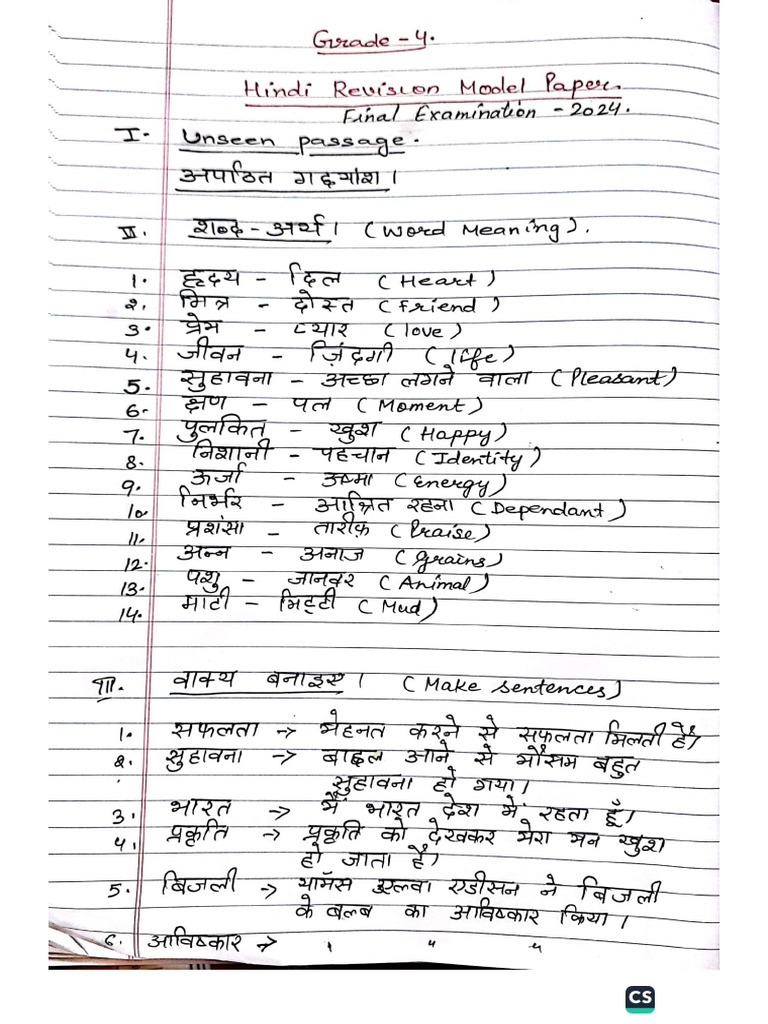 Grade - 4.
Hindi Revision Model Paper.
Final Examination - 2024.
I. Unseen passage.
अपठित गद्यांश।
II. शब्द - अर्थ। (Word Meaning).
1. हृदय - दिल (Heart)
2. मित्र - दोस्त (Friend)
3. प्रेम - प्यार (love)
4. जीवन - ज़िंदगी (life)
5. सुहावना - अच्छा लगने वाला (Pleasant)
6. क्षण - पल (Moment)
7. पुलकित - खुश (Happy)
8. निशानी - पहचान (Identity)
9. ऊर्जा - ऊष्मा (Energy)
10 निर्भर - आश्रित रहना (Dependant)
11. प्रशंसा - तारीफ़ (Praise)
12. अन्न - अनाज (Grains)
13. पशु - जानवर (Animal)
14. माटी - मिट्टी (Mud)
III. वाक्य बनाइए। (Make sentences)
1. सफलता → मेहनत करने से सफलता मिलती है।
2. सुहावना → बादल आने से मौसम बहुत
सुहावना हो गया।
3. भारत → मैं भारत देश में रहता हूँ।
4. प्रकृति → प्रकृति को देखकर मेरा मन खुश
हो जाता है।
5. बिजली → थामॅस एडीसन ने बिजली
के बल्ब का आविष्कार किया।
6. आविष्कार → " " "
CS